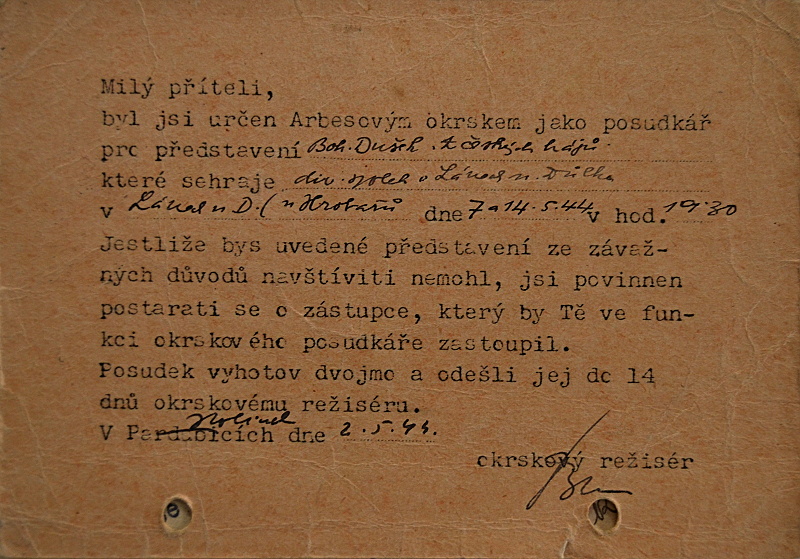 Milý příteli,
byl jsi určen Arbesovým okrskem jako posudkář
pro představení Boh. Dušek: Z českých hájů
které sehraje div. spolek v n.
v n. D. ( u Hrobařů dne 7 a 14.5.44 v hod. 19.30
Jestliže bys uvedené představení ze závaž-
ných důvodů navštíviti nemohl, jsi povinnen
postarati se o zástupce, který by Tě ve fun-
kci okrskového posudkáře zastoupil.
Posudek vyhotov dvojmo a odešli jej do 14
dnů okrskovému režiséru.
V Pardubicích dne 2.5.44.
okrskový režisér